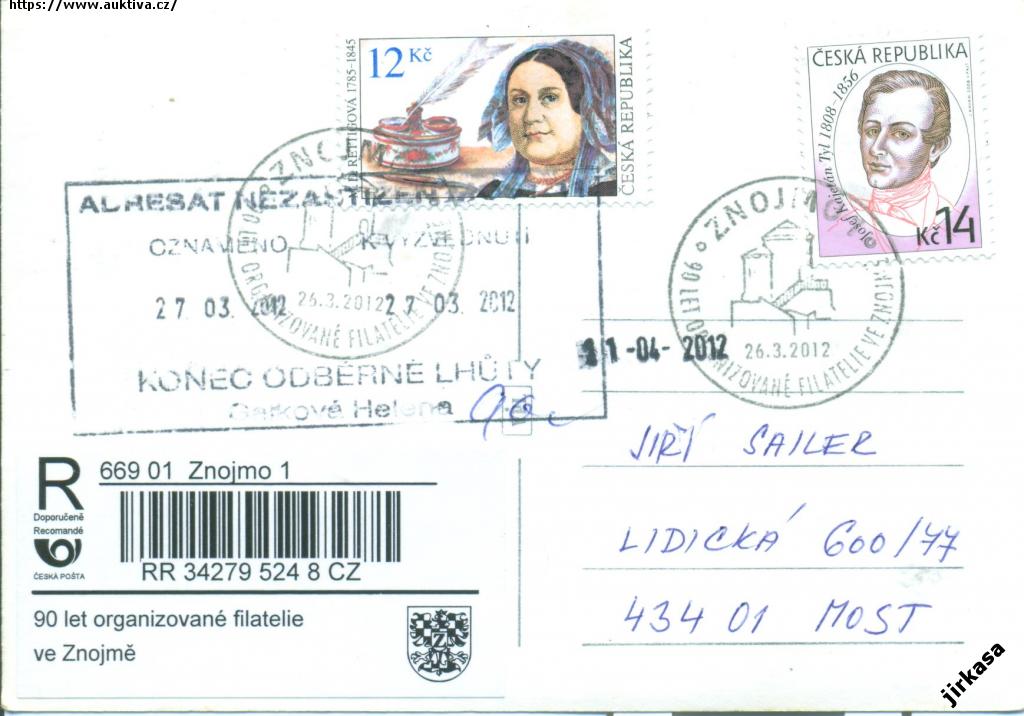 https://www.auktiva.cz/
12 Kč
RETTIGOVÁ 1785-1845
ČESKÁ REPUBLIKA
ČESKÁ REPUBLIKA
Josef Kajetán Tyl 1808-1856
Kč 14
ZNOJMO
26.3.2012
90 LET ORGANIZOVANÉ FILATELIE VE ZNOJMĚ
ZNOJMO
26.3.2012
90 LET ORGANIZOVANÉ FILATELIE VE ZNOJMĚ
ADRESÁT NEZASTIŽEN
OZNÁMENO K VYZVEDNUTÍ
27 03. 2012 27 03. 2012
KONEC ODBĚRNÉ LHŮTY
Helena
11-04-2012
JIŘÍ SAILER
LIDICKÁ 600/77
434 01 MOST
R
Doporučeně
Recomandé
ČESKÁ POŠTA
669 01 Znojmo 1
RR 34279 524 8 CZ
90 let organizované filatelie
ve Znojmě
jirkasa